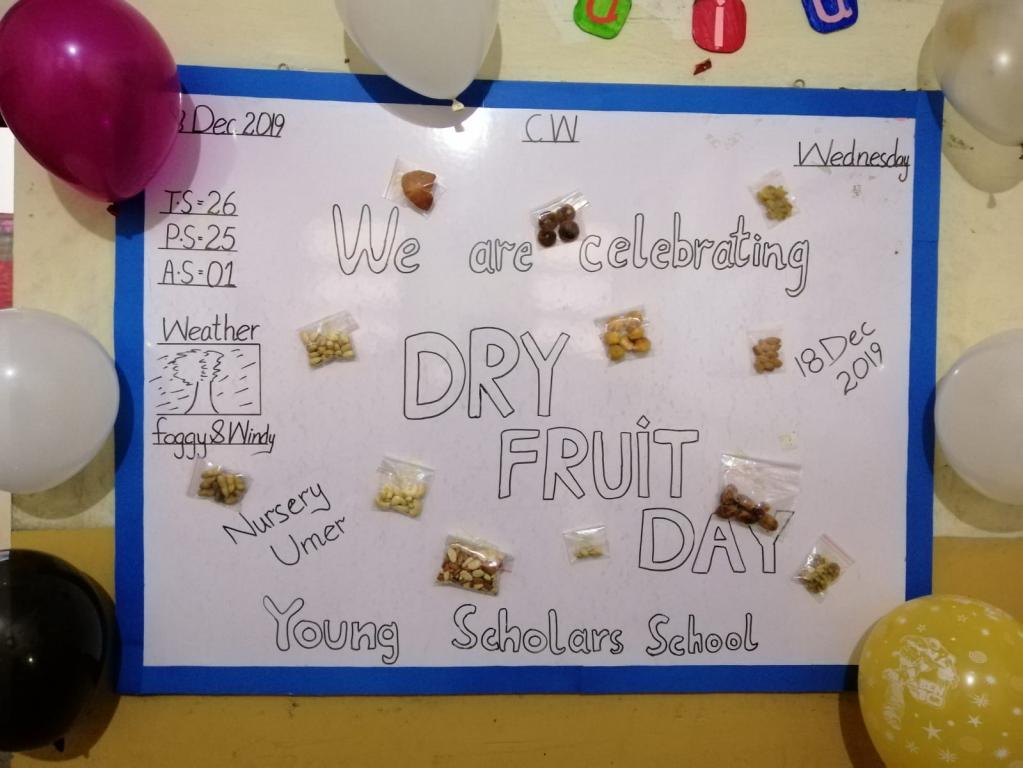 u i u
Dec 2019
CW
Wednesday
T.S=26
P.S=25
A.S=01
We are celebrating
Weather
DRY
18 Dec
2019
foggy & Windy
FRUiT
Nursery
Umer
DAY
Young Scholars School
BEN